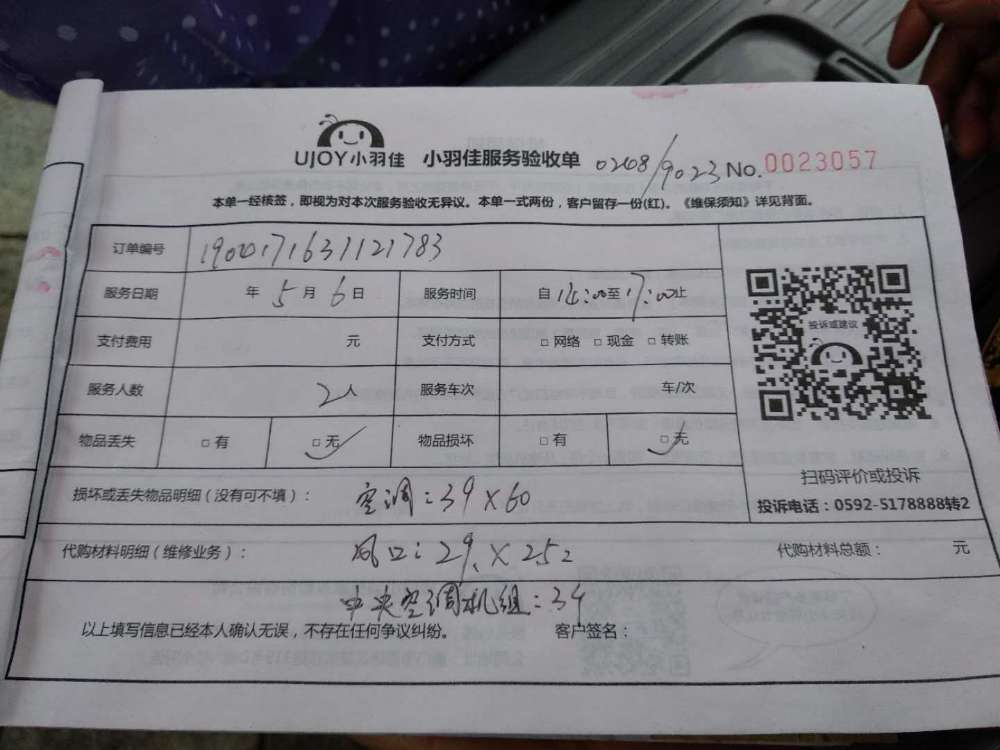 UJOY小羽佳 小羽佳服务验收单 0268/9023 No.0023057
本单一经核签，即视为对本次服务验收无异议。本单一式两份，客户留存一份(红)。《维保须知》详见背面。
订单编号 1900171631121783
服务日期 年 5 月 6 日 服务时间 自 14:00 至 17:00 止
支付费用 元 支付方式 □ 网络 □ 现金 □ 转账
服务人数 2人 服务车次 车/次
物品丢失 □ 有 □ 无 物品损坏 □ 有 □ 无
投诉或建议
扫码评价或投诉
投诉电话：0592-5178888转2
损坏或丢失物品明细（没有可不填）： 空调：39×60
代购材料明细（维修业务）： 风口：29、×252 代购材料总额： 元
中央空调机组：34
以上填写信息已经本人确认无误，不存在任何争议纠纷。 客户签名：